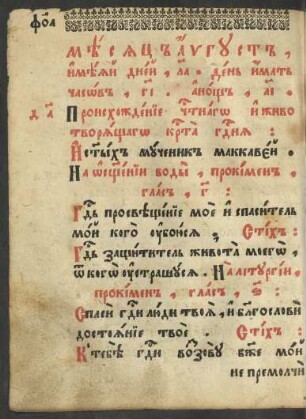 фо҃а
мѣ́сяцъ а҆́ѵгꙋстъ,
и҆мѣ́яй дні́й, л҃а. де́нь и҆́мать
часѡ́въ, г҃і. а҆но́щь, а҃і.
д҃ а҃ Происхожде́нїе чⷭ҇тна́гѡ и҆ живо
творѧ́щагѡ крⷭ҇та̀ гдⷭ҇нѧ :
И҆ ст҃ы́хъ мꙋ́ченик маккаве́й .
На ѡ҆сщ҃е́нїи воды̀, проки́менъ,
гла́съ, г҃ :
Гдⷭ҇ь просвѣще́нїе моѐ и҆ спаси́тель
мо́й кого̀ ᲂу҆бою́сѧ . Сті́хъ :
Гдⷭ҇ь защи́титель живота̀ моегѡ̀,
ѿ когѡ̀ ᲂу҆страшꙋ́сѧ . На лїтꙋргі́и,
проки́менъ, гла́съ, ѕ҃ :
Спасѝ гдⷭ҇и лю́ди твоѧ̀, и҆ блг҃ословѝ
достоѧ́нїе твоѐ . Сті́хъ :
К тебѣ̀ гдⷭ҇и возовꙋ̀ бж҃е мо́й
не премолчи́